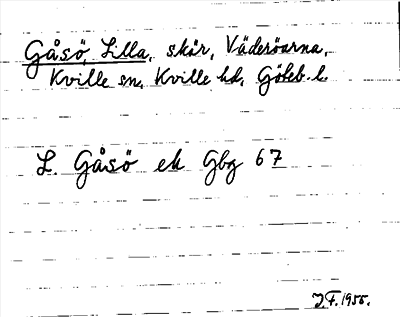 Gåsö, Lilla, skär, Väderöarna,
Kville sn, Kville hd, Göteb. l.
L. Gåsö ek Gbg 67
J F. 1955.